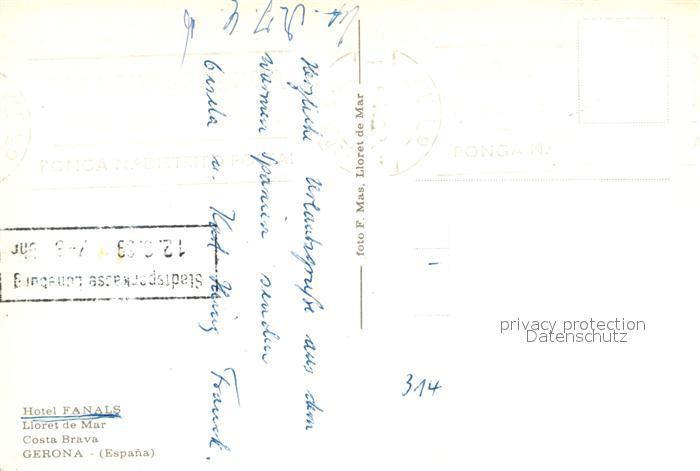 Herzliche Urlaubsgrüße aus dem
warmen Spanien senden
Gisela u. Karl Heinz Franck.
foto F. Mas, Lloret de Mar
PONGA N.º DISTRITO POSTAL
PONGA N.
Stadtsparkasse Lüneburg
12. 6. 63 7-8 Uhr
privacy protection
Datenschutz
314
Hotel FANALS
Lloret de Mar
Costa Brava
GERONA - (España)